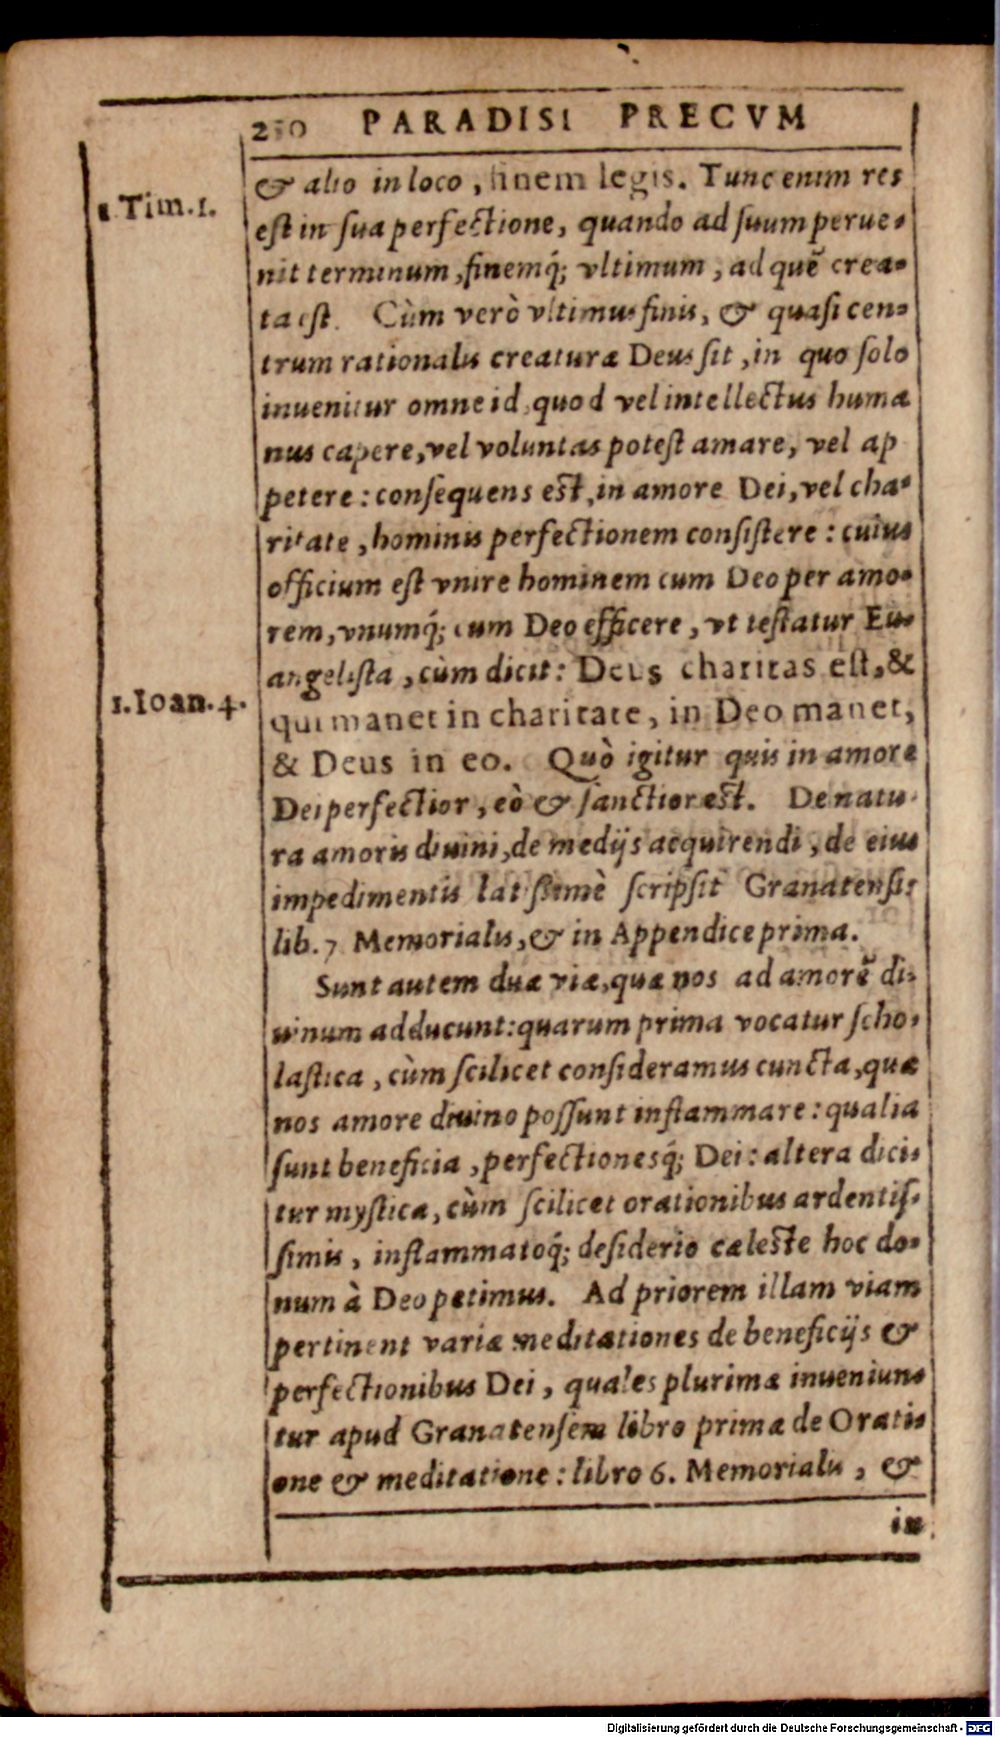 210 PARADISI PRECVM
1 Tim. 1.
& alio in loco, finem legis. Tunc enim res
est in sua perfectione, quando ad suum perue-
nit terminum, finemq́; vltimum, ad quẽ crea-
ta est. Cùm verò vltimus finis, & quasi cen-
trum rationalis creaturæ Deus sit, in quo solo
inuenitur omne id, quod vel intellectus huma
nus capere, vel voluntas potest amare, vel ap
petere: consequens est, in amore Dei, vel cha-
ritate, hominis perfectionem consistere: cuius
officium est vnire hominem cum Deo per amo-
rem, vnumq́; cum Deo efficere, vt testatur Eu-
angelista, cùm dicit: Deus charitas est, &
1. Ioan. 4.
qui manet in charitate, in Deo manet,
& Deus in eo. Quò igitur quis in amore
Dei perfectior, eò & sanctior est. De natu-
ra amoris diuini, de medijs acquirendi, de eius
impedimentis latissimè scripsit Granatensis
lib. 7 Memorialis, & in Appendice prima.
Sunt autem duæ viæ, quæ nos ad amorẽ di-
uinum adducunt: quarum prima vocatur scho-
lastica, cùm scilicet consideramus cuncta, quæ
nos amore diuino possunt inflammare: qualia
sunt beneficia, perfectionesq́; Dei: altera dici-
tur mystica, cùm scilicet orationibus ardentis-
simis, inflammatoq́; desiderio cæleste hoc do-
num à Deo petimus. Ad priorem illam viam
pertinent variæ meditationes de beneficijs &
perfectionibus Dei, quales plurimæ inueniun-
tur apud Granatensem libro primæ de Orati-
one & meditatione: libro 6. Memorialis, &
in
Digitalisierung gefördert durch die Deutsche Forschungsgemeinschaft - DFG